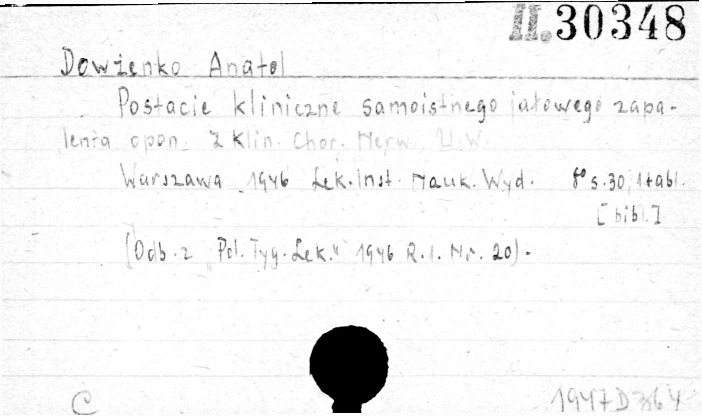 II.30348
Dowżenko Anatol
Postacie kliniczne samoistnego jałowego zapa-
lenia opon. Z Klin. Chor. Nerw. U.W.
Warszawa 1946 Lek. Inst. Nauk. Wyd. 8° s. 30, 1 tabl.
[bibl.]
(Odb. z „Pol. Tyg. Lek." 1946 R.1. Nr. 20).
C 1947 D 364